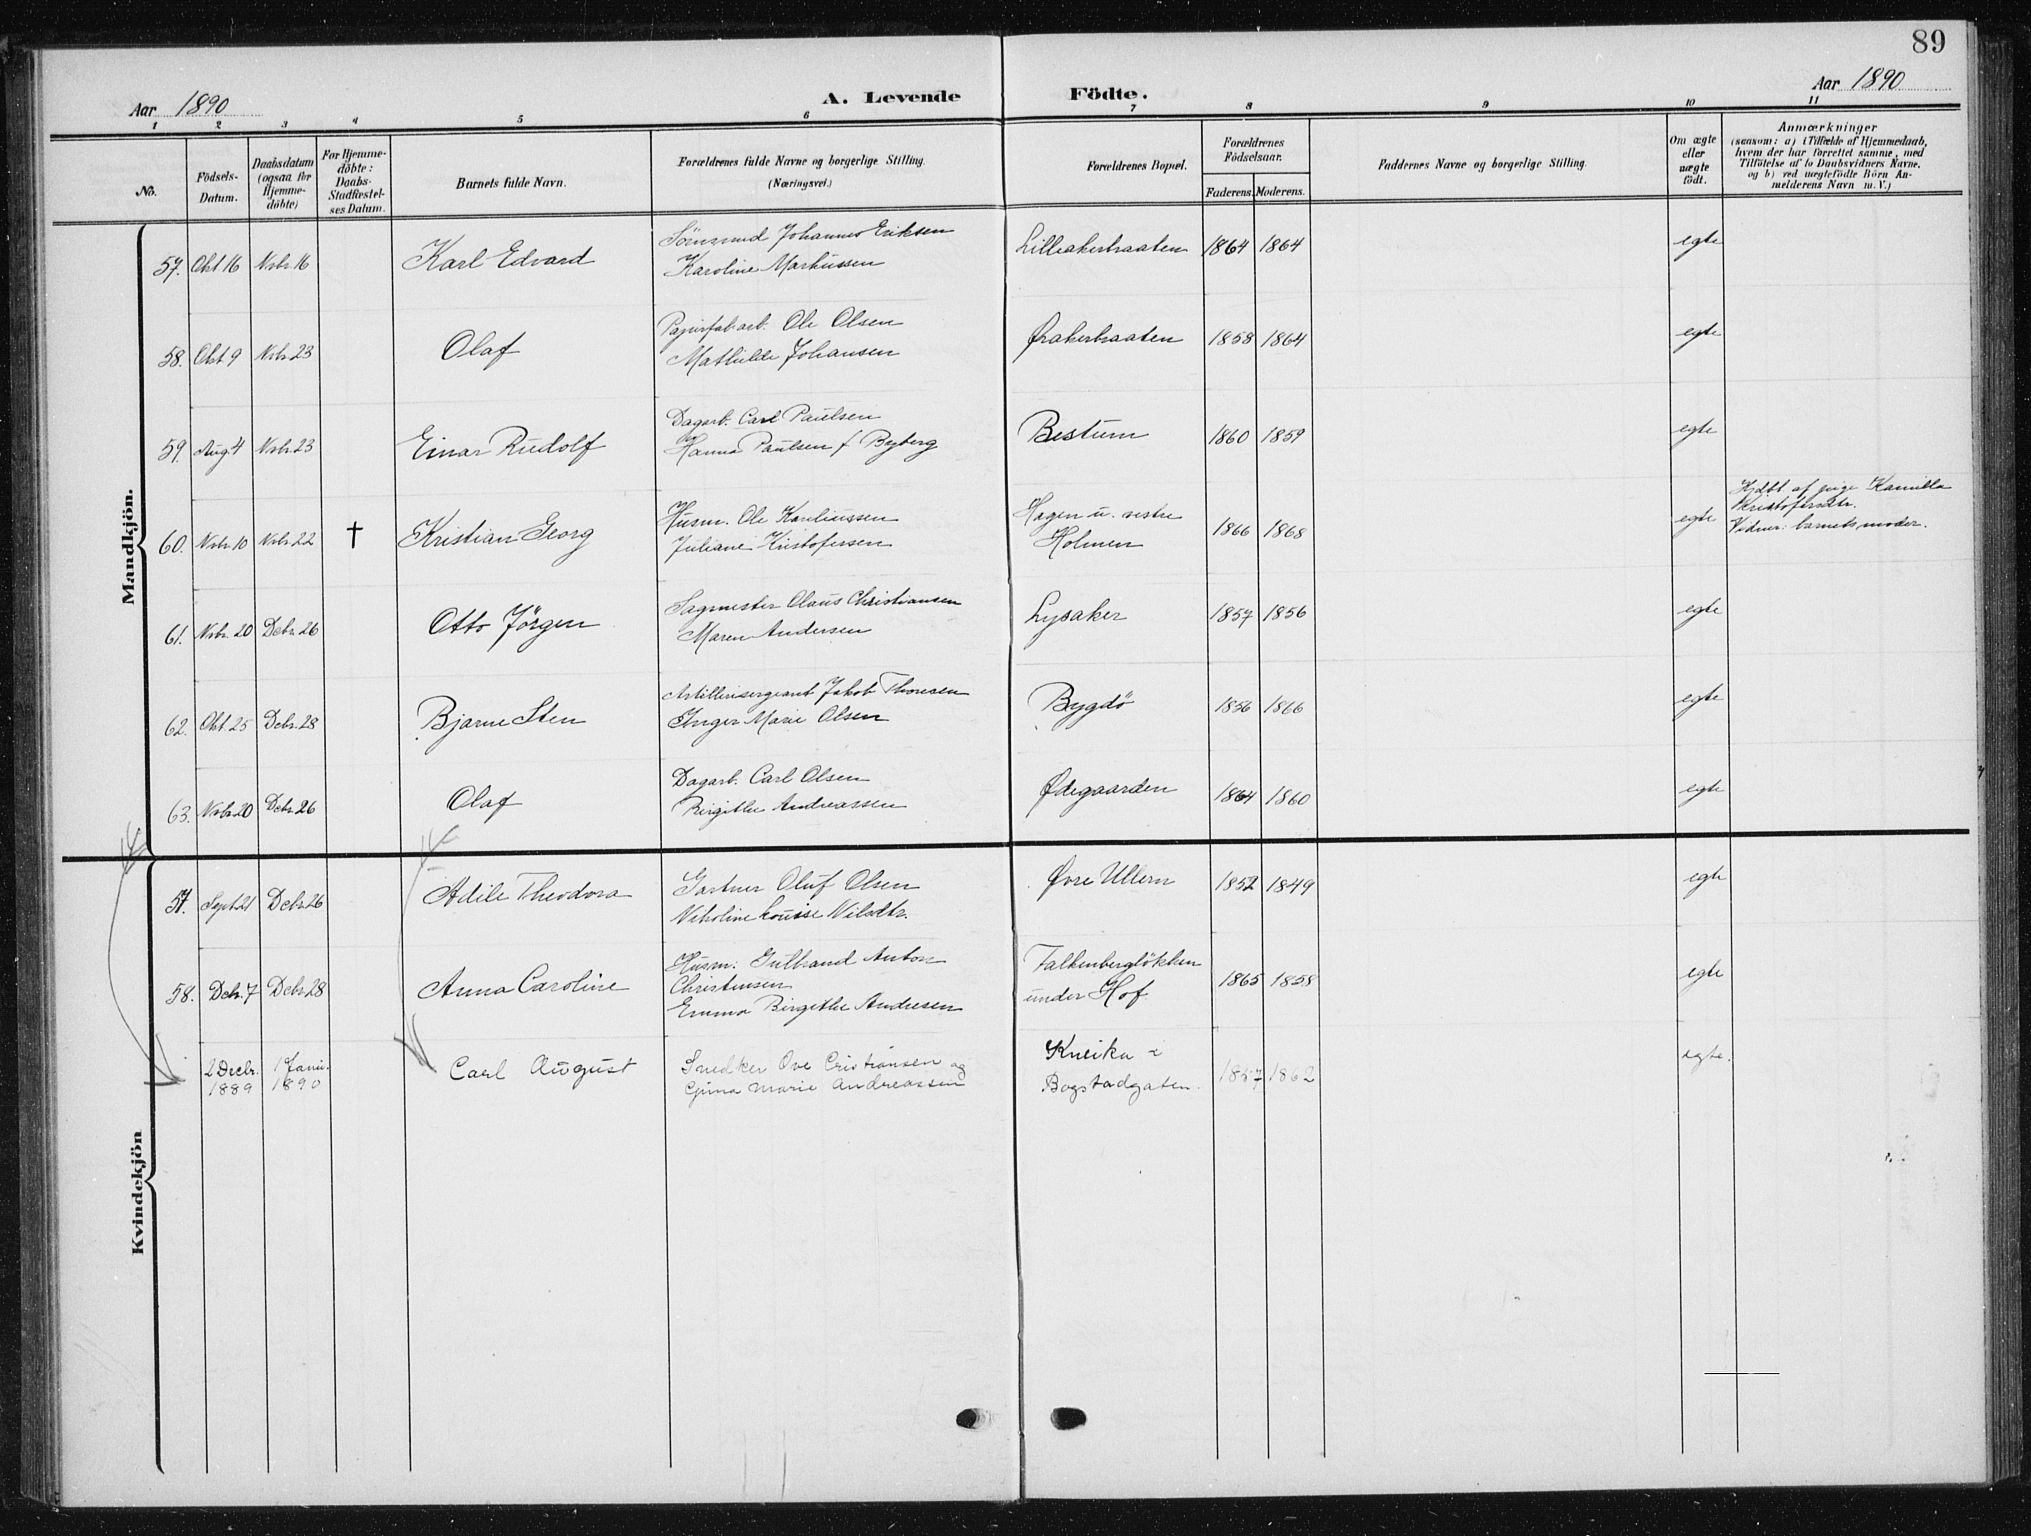 89
Aar 1890
A. Levende Födte.
Aar 1890
1 2 3 4 5 6 7 8 9 10 11
No.
Födsels-
Datum.
Daabsdatum
(ogsaa for
Hjemme-
döbte)
For Hjemme-
döbte:
Daabs-
Stadfæstel-
ses Datum.
Barnets fulde Navn.
Forældrenes fulde Navne og borgerlige Stilling.
(Næringsvei.)
Forældrenes Bopæl.
Forældrenes
Födselsaar.
Faderens. Moderens.
Faddernes Navne og borgerlige Stilling.
Om ægte
eller
uægte
födt.
Anmærkninger
(saasom: a) i Tilfælde af Hjemmedaab,
hvem der har forrettet samme, med
Tilföielse af to Daabsvidners Navne,
og b) ved uægtefödte Börn An-
melderens Navn m. V.)
Mandkjön.
57. Okt 16 Nvbr. 16 Karl Edvard
Johannes Eriksen
Karoline Markussen
Lilleakerbraaten 1864 1864 egte
58. Okt 9 Nvbr. 23 Olaf
Papirfab.arb. Ole Olsen
Mathilde Johansen
Ørakerbraaten 1858 1864 egte
59. Aug. 4 Nvbr. 23 Einar Rudolf
Dagarb. Carl Paulsen
Hanna Paulsen f Byberg
Bestum 1860 1859 egte
60. Nvbr. 10 Nvbr. 22 † Kristian Georg
Husm. Ole Karliussen
Juliane Kristofersen
Hagen u. vestre
Holmen
1866 1868 egte
Hjdbt af pige Kamilla
Kristofersdtr.
Vidner: barnets moder.
61. Nvbr. 20 Dcbr. 26 Otto Jörgen
Sagmester Olaus Christiansen
Maren Andersen
Lysaker 1857 1856 egte
62. Okt. 25 Dcbr. 28 Bjarne Sten
Artillerisergeant Jakob Thoresen
Inger Marie Olsen
Bygdö 1856 1866 egte
63. Nvbr. 20 Dcbr. 26 Olaf
Dagarb. Carl Olsen
Birgithe Andreassen
Ødegaarden 1864 1860 egte
Kvindekjön
57. Sept. 21 Dcbr. 26 Adile Theodora
Gartner Oluf Olsen
Nikoline Louise Nilsdtr.
Øvre Ullern 1852 1849 egte
58. Dcbr. 7 Dcbr. 28 Anna Caroline
Husm. Gulbrand Anton
Christensen
Emma Birgithe Andresen
Falkenberglökken
under Hof
1865 1858 egte
2 Decbr.
1889
1 Janu.
1890
Carl August
Snedker Ove Cristiansen og
Gina Marie Andreassen
Kneika i
Bogstadgaten.
1857 1862 egte.